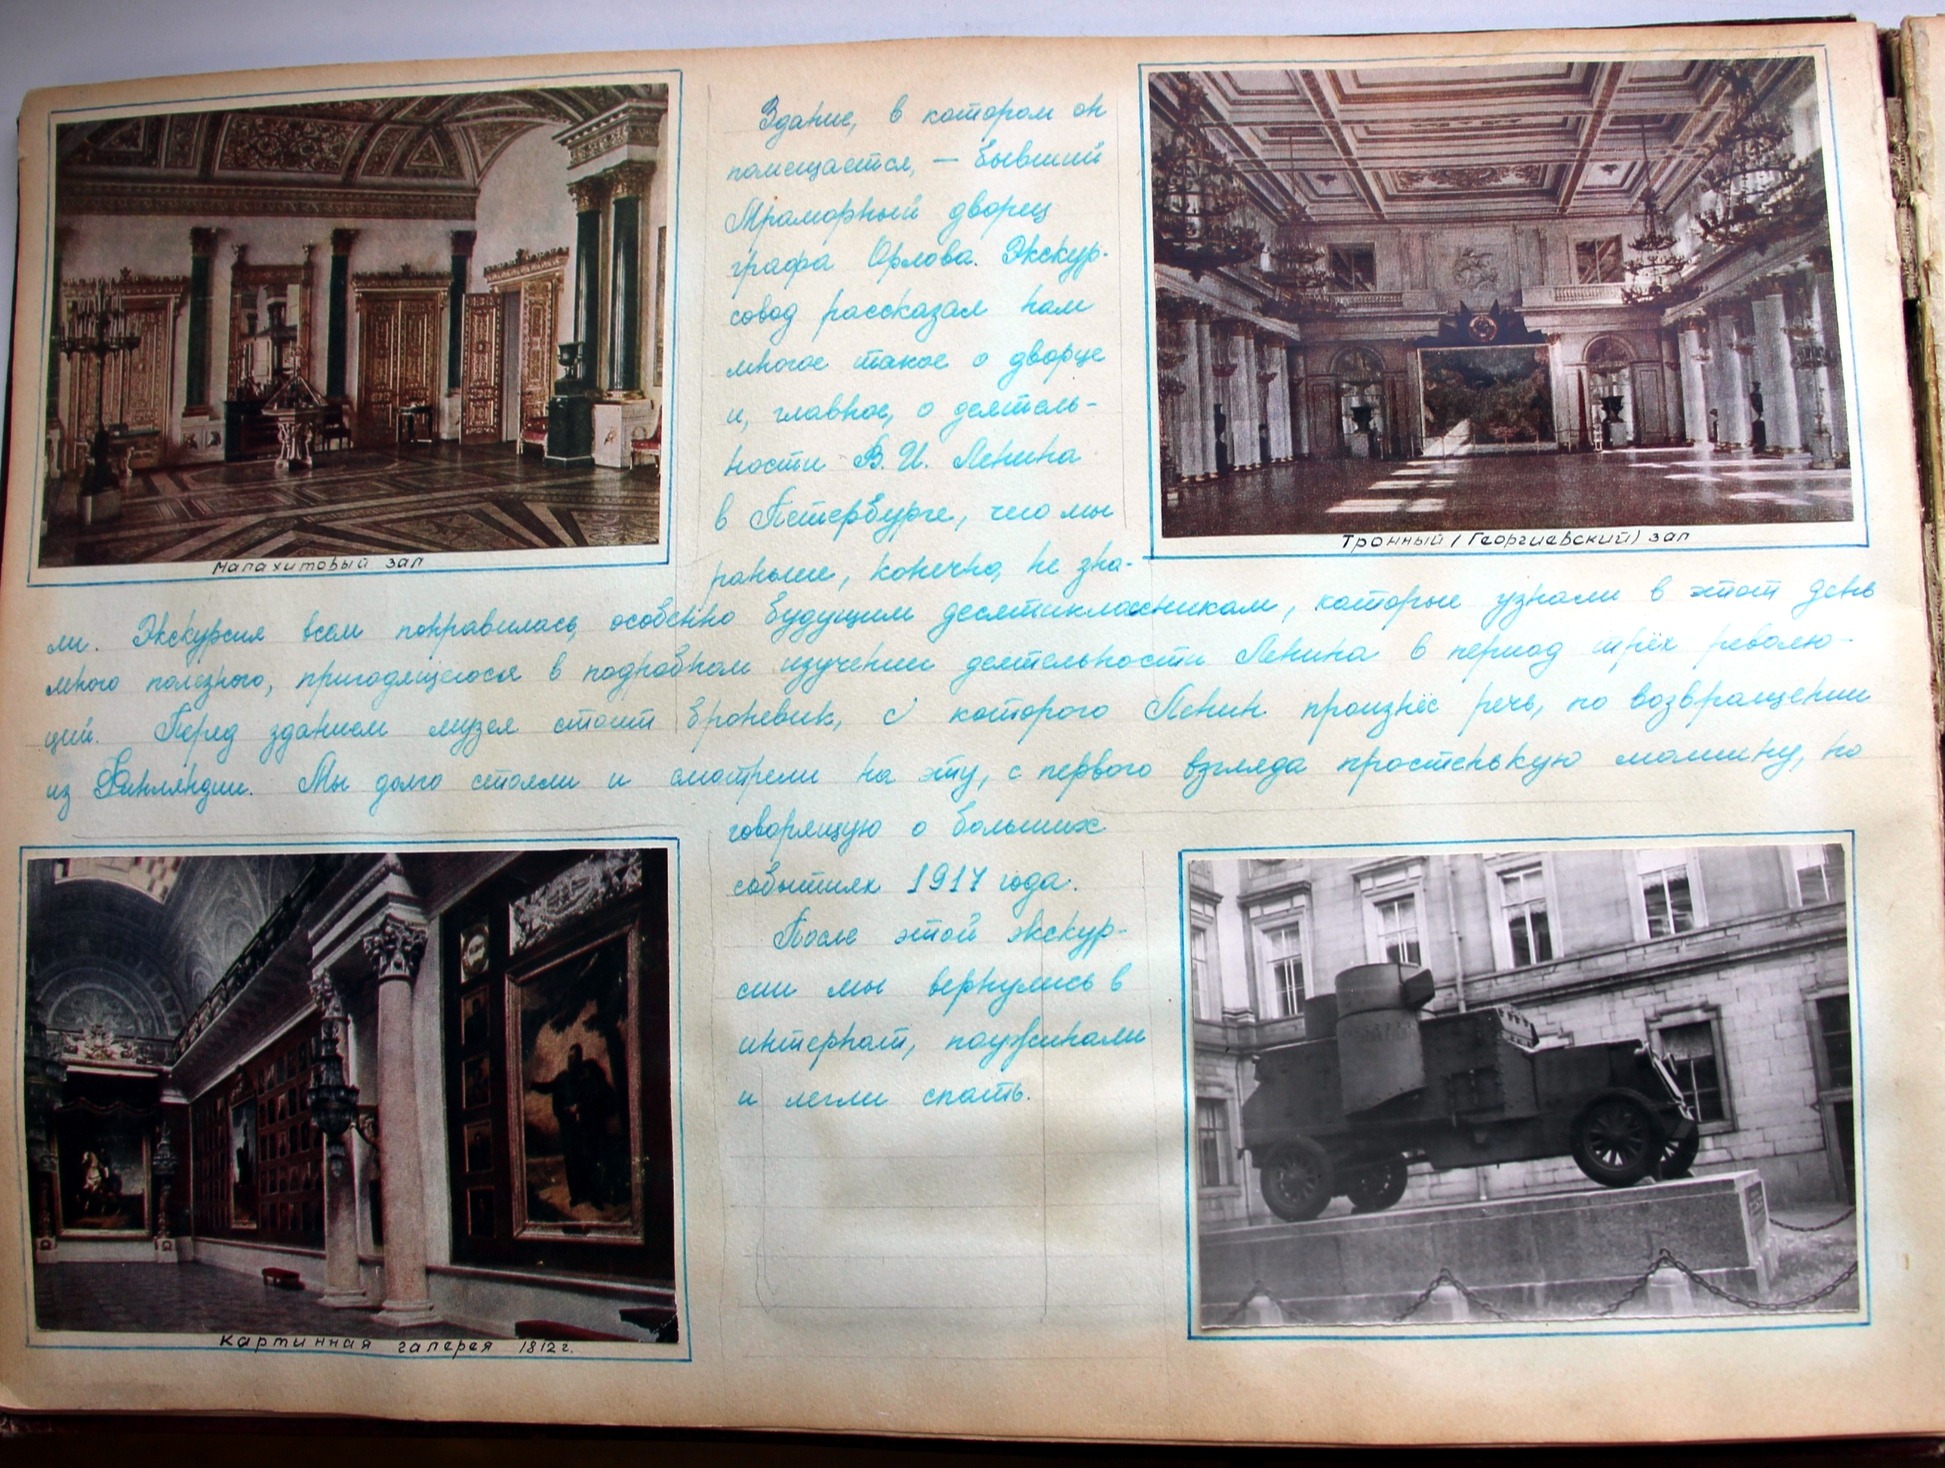 Здание, в котором он
помещается, — бывший
Мраморный дворец
графа Орлова. Экскур-
совод рассказал нам
многое такое о дворце
и, главное, о деятель-
ности В. И. Ленина
в Петербурге, чего мы
раньше, конечно, не зна-
ли. Экскурсия всем понравилась, особенно будущим десятиклассникам, которые узнали в этот день
много полезного, пригодящегося в подробном изучении деятельности Ленина в период трёх револю-
ций. Перед зданием музея стоит броневик, с которого Ленин произнёс речь, по возвращении
из Финляндии. Мы долго стояли и смотрели на эту, с первого взгляда простенькую машину, но
говорящую о больших
событиях 1917 года.
После этой экскур-
сии мы вернулись в
интернат, поужинали
и легли спать.
Малахитовый зал
Тронный (Георгиевский) зал
Картинная галерея 1812 г.